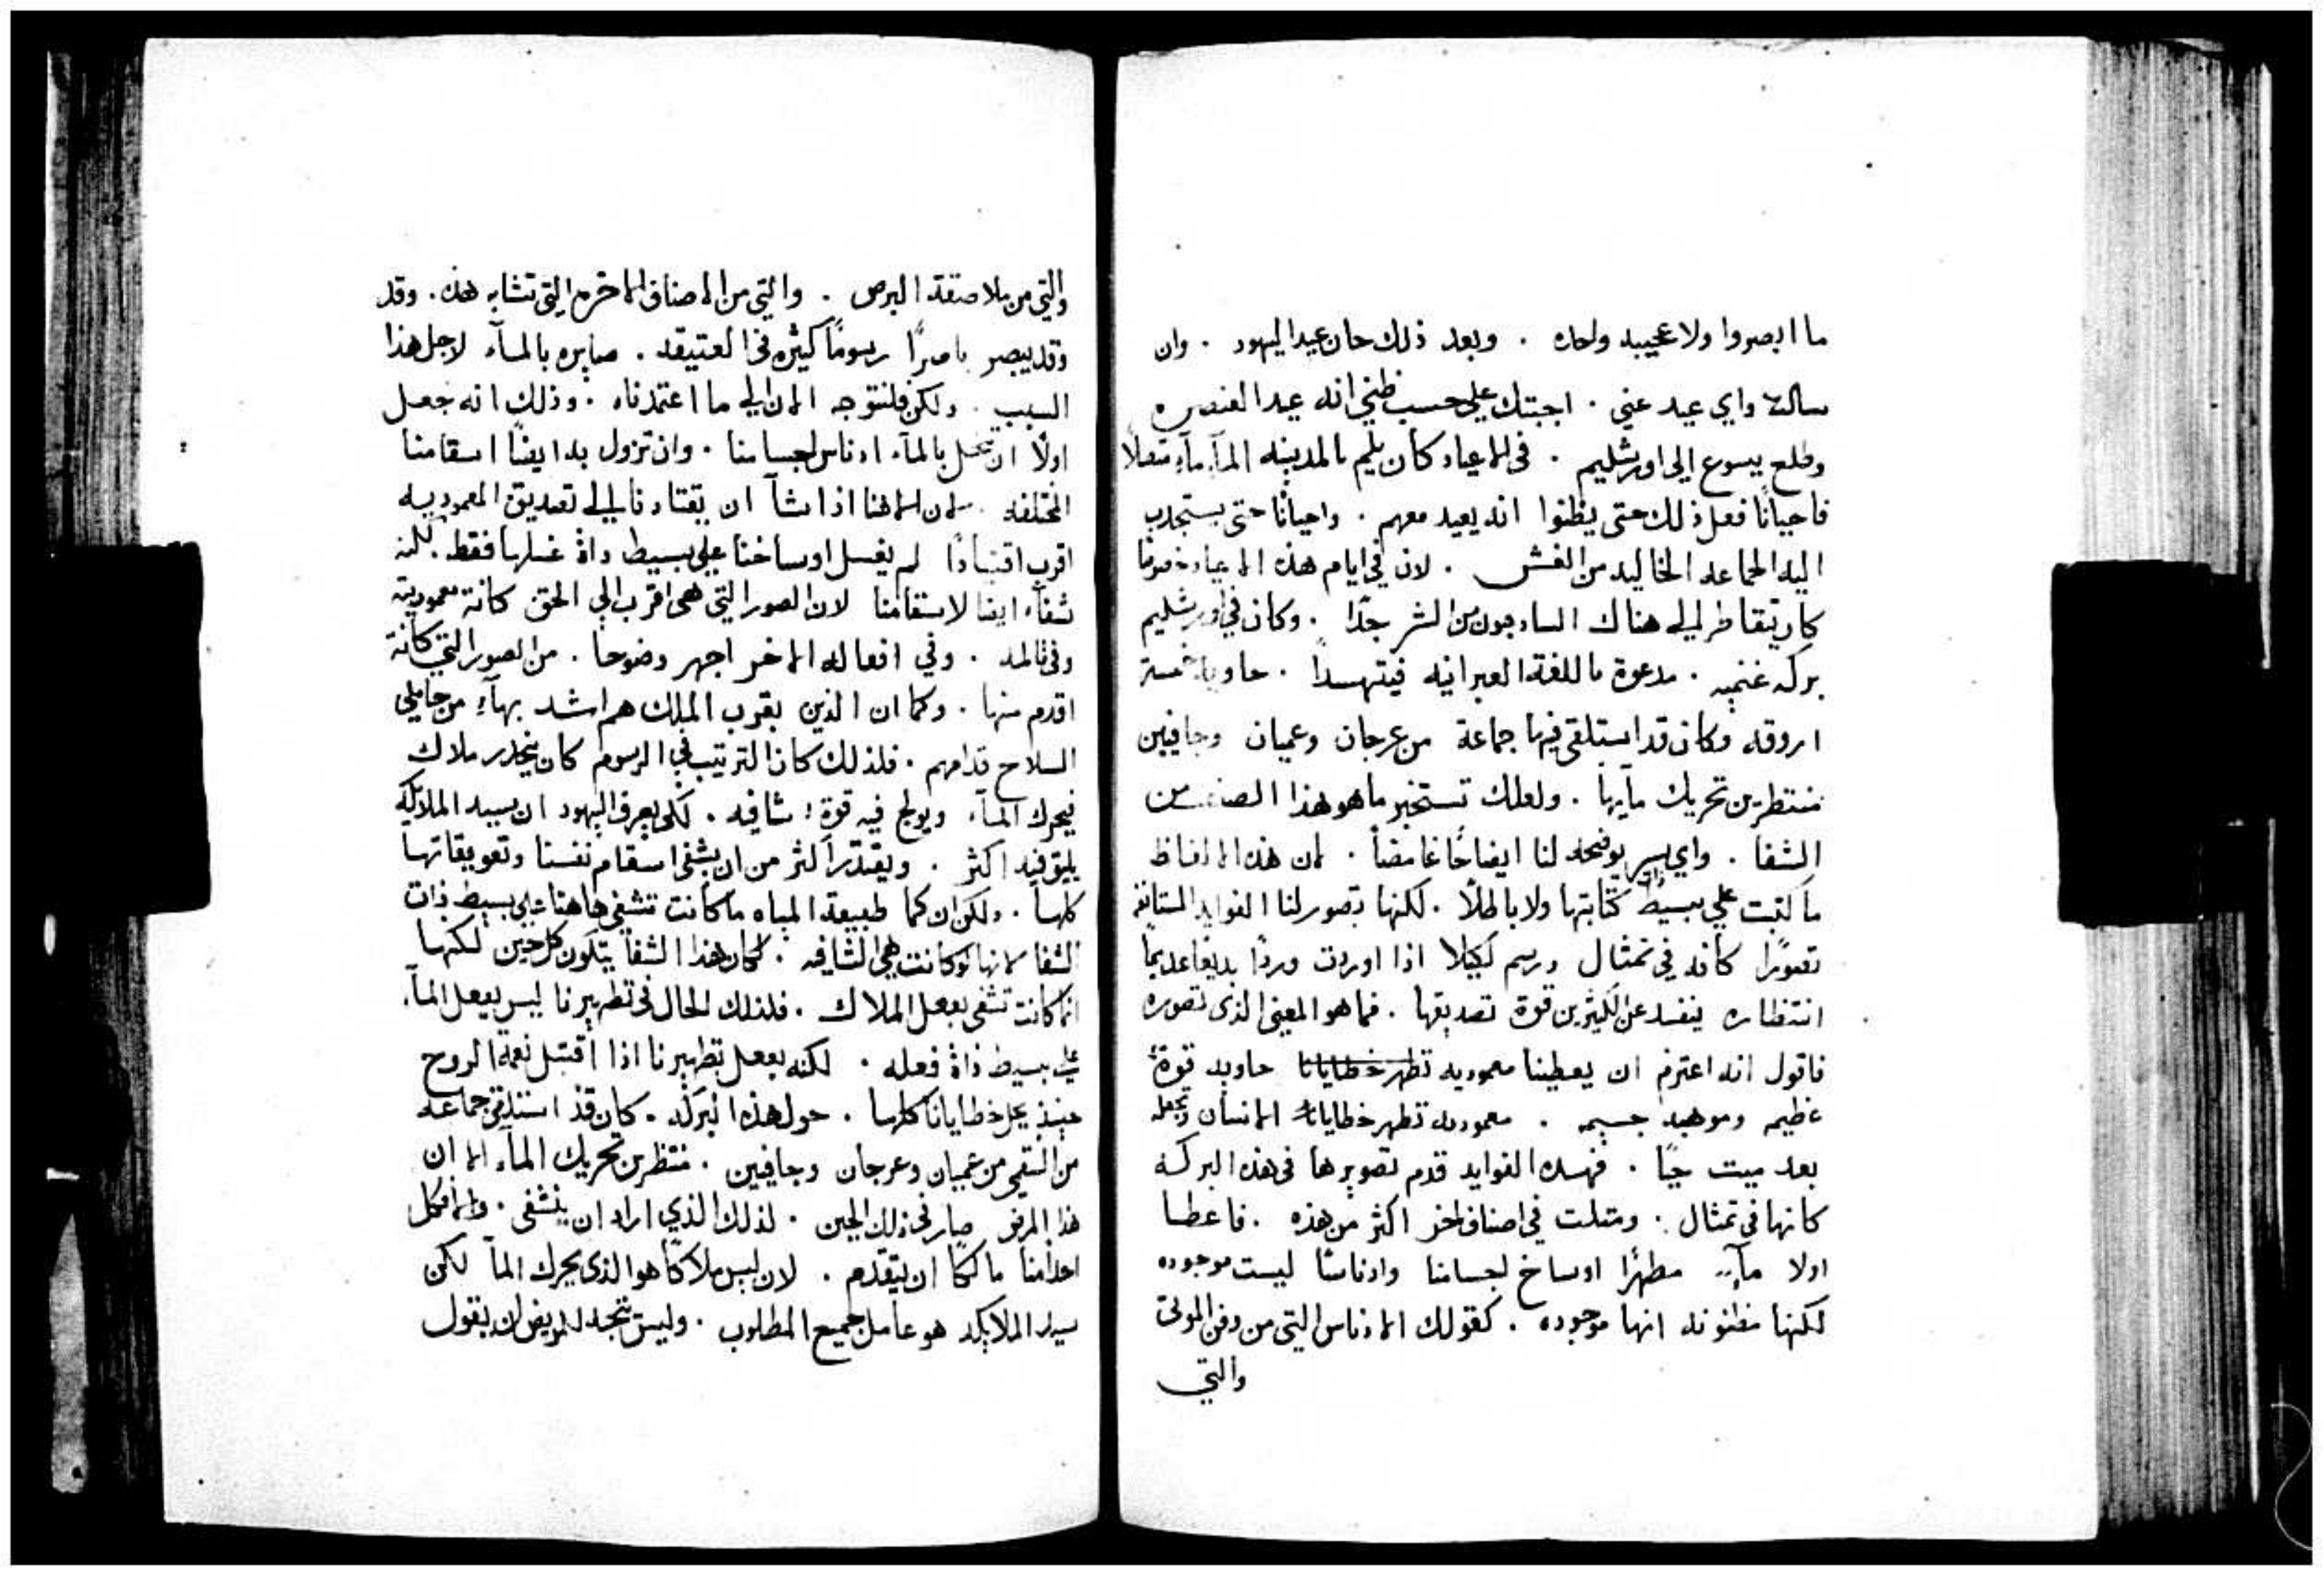 ما ابصروا ولا عجيبه واحده . وبعد ذلك حان عيد اليهود . وان
سالت واي عيد عني . اجبتك علي حسب ظني انه عيد العنصره
وطلع يسوع الي اورشليم . في الاعياد كان يلم بالمدينه الماماً متصلاً
فاحياناً فعل ذلك حتى يظنوا انه يعيد معهم . واحياناً حتى يستجذب
اليه الجماعه الخاليه من الغش . لان في ايام هذه الاعياد خصوصاً
كان يتقاطر الي هناك الساذجون من الشر جداً . وكان في اورشليم
بركه غنميه . مدعوة باللغة العبرانيه فيتهسدا . حاويه خمسة
اروقه وكان قد استلقى فيها جماعة من عرجان وعميان وجافيين
منتظرين تحريك مايها . ولعلك تستخبر ما هو هذا الصنف من
الشفا . واي سر يوضحه لنا ايضاحاً غامضاً . لان هذه الالفاظ
ما كتبت علي بسيط ذات كتابتها ولا باطلاً . لكنها تصور لنا الفوايد المستانفه
تصوراً كانه في تمثال ورسم لكيلا اذا اوردت ورداً بديعاً عديماً
انتظاره ينفسد عن الكثيرين قوة تصديقها . فما هو المعني الذي تصوره
فاقول انه اعتزم ان يعطينا معموديه تطهر خطايانا حاويه قوة
عظيمه وموهبه جسيمه . معموديه تطهر خطايانا الانسان وتجعله
بعد ميت حياً . فهذه الفوايد قدم تصويرها في هذه البركه
كانها في تمثال . ومثلت في اصناف اخر اكثر من هذه . فاعطا
اولا مآء مطهراً اوساخ اجسامنا وادناساً ليست موجوده
لكنها مظنونه انها موجوده . كقولك الادناس التي من دفن الموتى
والتي
والتي من ملاصقة البرص . والتي من الاصناف الاخر التي تشابه هذه . وقد
وقد يبصر باصراً رسوماً كثيره في العتيقه . صايره بالمآء لاجل هذا
السبب . ولكن فلنتوجه الان الي ما اعتمدناه . وذلك انه جعل
اولاً ان تحل بالمآء ادناس اجسامنا . وان تزول به ايضاً اسقامنا
المختلفه . لان الاهنا اذا شآ ان يقتادنا الي تصديق المعموديه
اقرب اقتياداً لم يغسل اوساخنا علي بسيط ذاة غسلها فقط . لكنه
شفآء ايضاً لاسقامنا لان الصور التي هي اقرب الي الحق كانة معمودية
وفي تالمه . وفي افعاله الاخر اجهر وضوحاً . من الصور التي كانة
اقدم منها . وكما ان الذين بقرب الملك هم اشد بهآء من حاملي
السلاح قدامهم . فلذلك كان الترتيب في الرسوم كان ينحدر ملاك
فيحرك المآء ويولج فيه قوة شافيه . لكي يعرف اليهود ان سيد الملايكه
يليق فيه اكثر . ويقتدر اكثر من ان يشفي اسقام نفسنا وتعويقاتها
كلها . ولكن ان كما طبيعة المياه ما كانت تشفي هاهنا علي بسيط ذات
الشفا لانها لو كانت هي الشافيه . لكان هذا الشفا يتكون كل حين لكنها
انما كانت تشفي بفعل الملاك . فلذلك الحال في تطهيرنا ليس يفعل المآء
علي بسيط ذاة فعله . لكنه يفعل بتطهيرنا اذا اقتبل نعمة الروح
حينيذ يحل خطايانا كلها . حول هذه البركه . كان قد استلقي جماعه
من السقمي من عميان وعرجان وجافيين . منتظرين تحريك المآء الا ان
هذا المرض صار في ذلك الحين . لذلك الذي اراد ان يشفى . والان فكل
احد منا مالكاً ان يتقدم . لان ليس ملاكاً هو الذي يحرك المآ لكن
سيد الملايكه هو عامل جميع المطلوب . وليس يتجه للمريض ان يقول